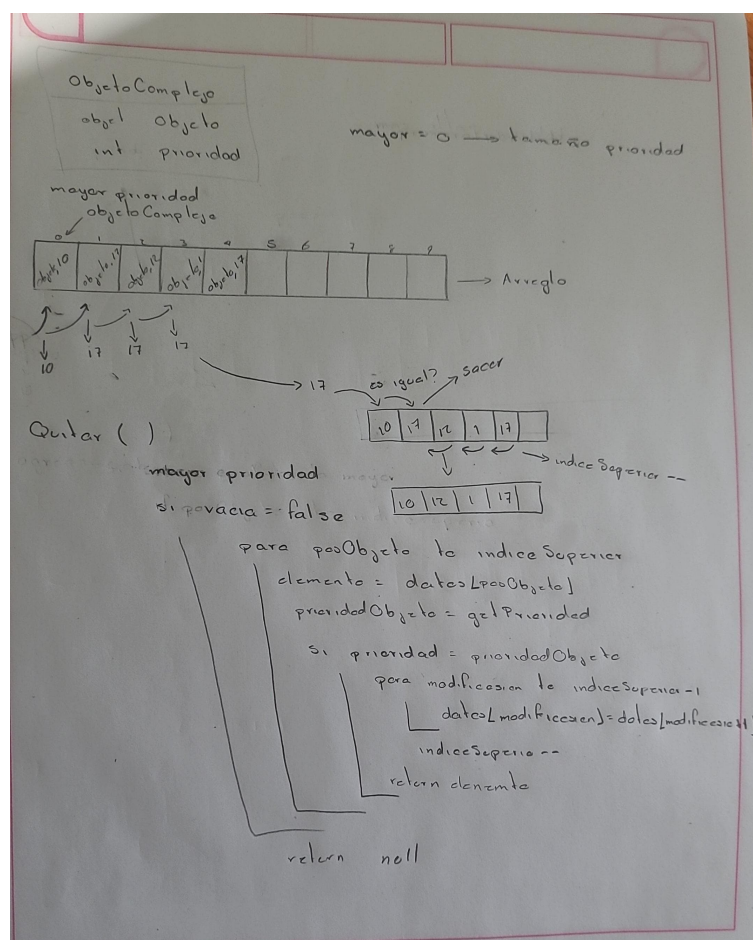 ObjetoComplejo
objet objeto
int prioridad
mayor = 0 → tamaño prioridad
mayor prioridad
objetoComplejo
0 1 2 3 4 5 6 7 8 9
objeto,10 objeto,17 objeto,12 objeto,1 objeto,17
→ Arreglo
10 17 17 17
→ 17 es igual? sacar
10 17 12 1 17
Quitar ( )
→ indiceSuperior --
mayor prioridad
10 12 1 17
si povacia = false
para posObjeto to indiceSuperior
elemento = datos[posObjeto]
prioridadObjeto = getPrioridad
si prioridad = prioridadObjeto
para modificasion to indiceSuperior-1
datos[modificasion] = datos[modificasion+1]
indiceSuperio --
return elemento
return null